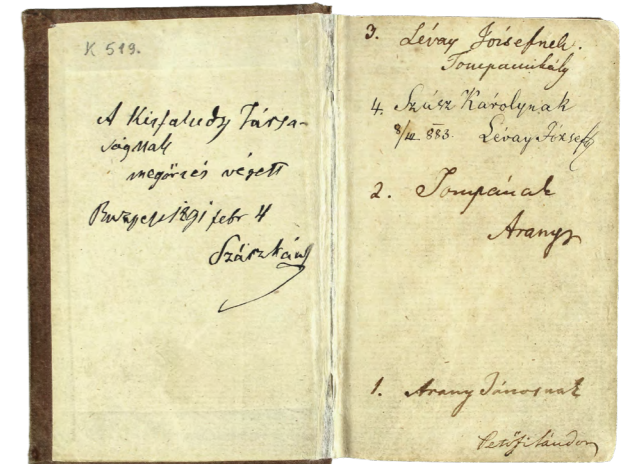 K 519.
A Kisfaludy Társa-
ságnak
megőrzés végett
Budapest 1891 febr 4
Szász Károly
3. Lévay Józsefnek.
Tompa Mihály
4. Szász Károlynak
8/IV. 883. Lévay József
2. Tompának
Arany
1. Arany Jánosnak
Petőfi Sándor